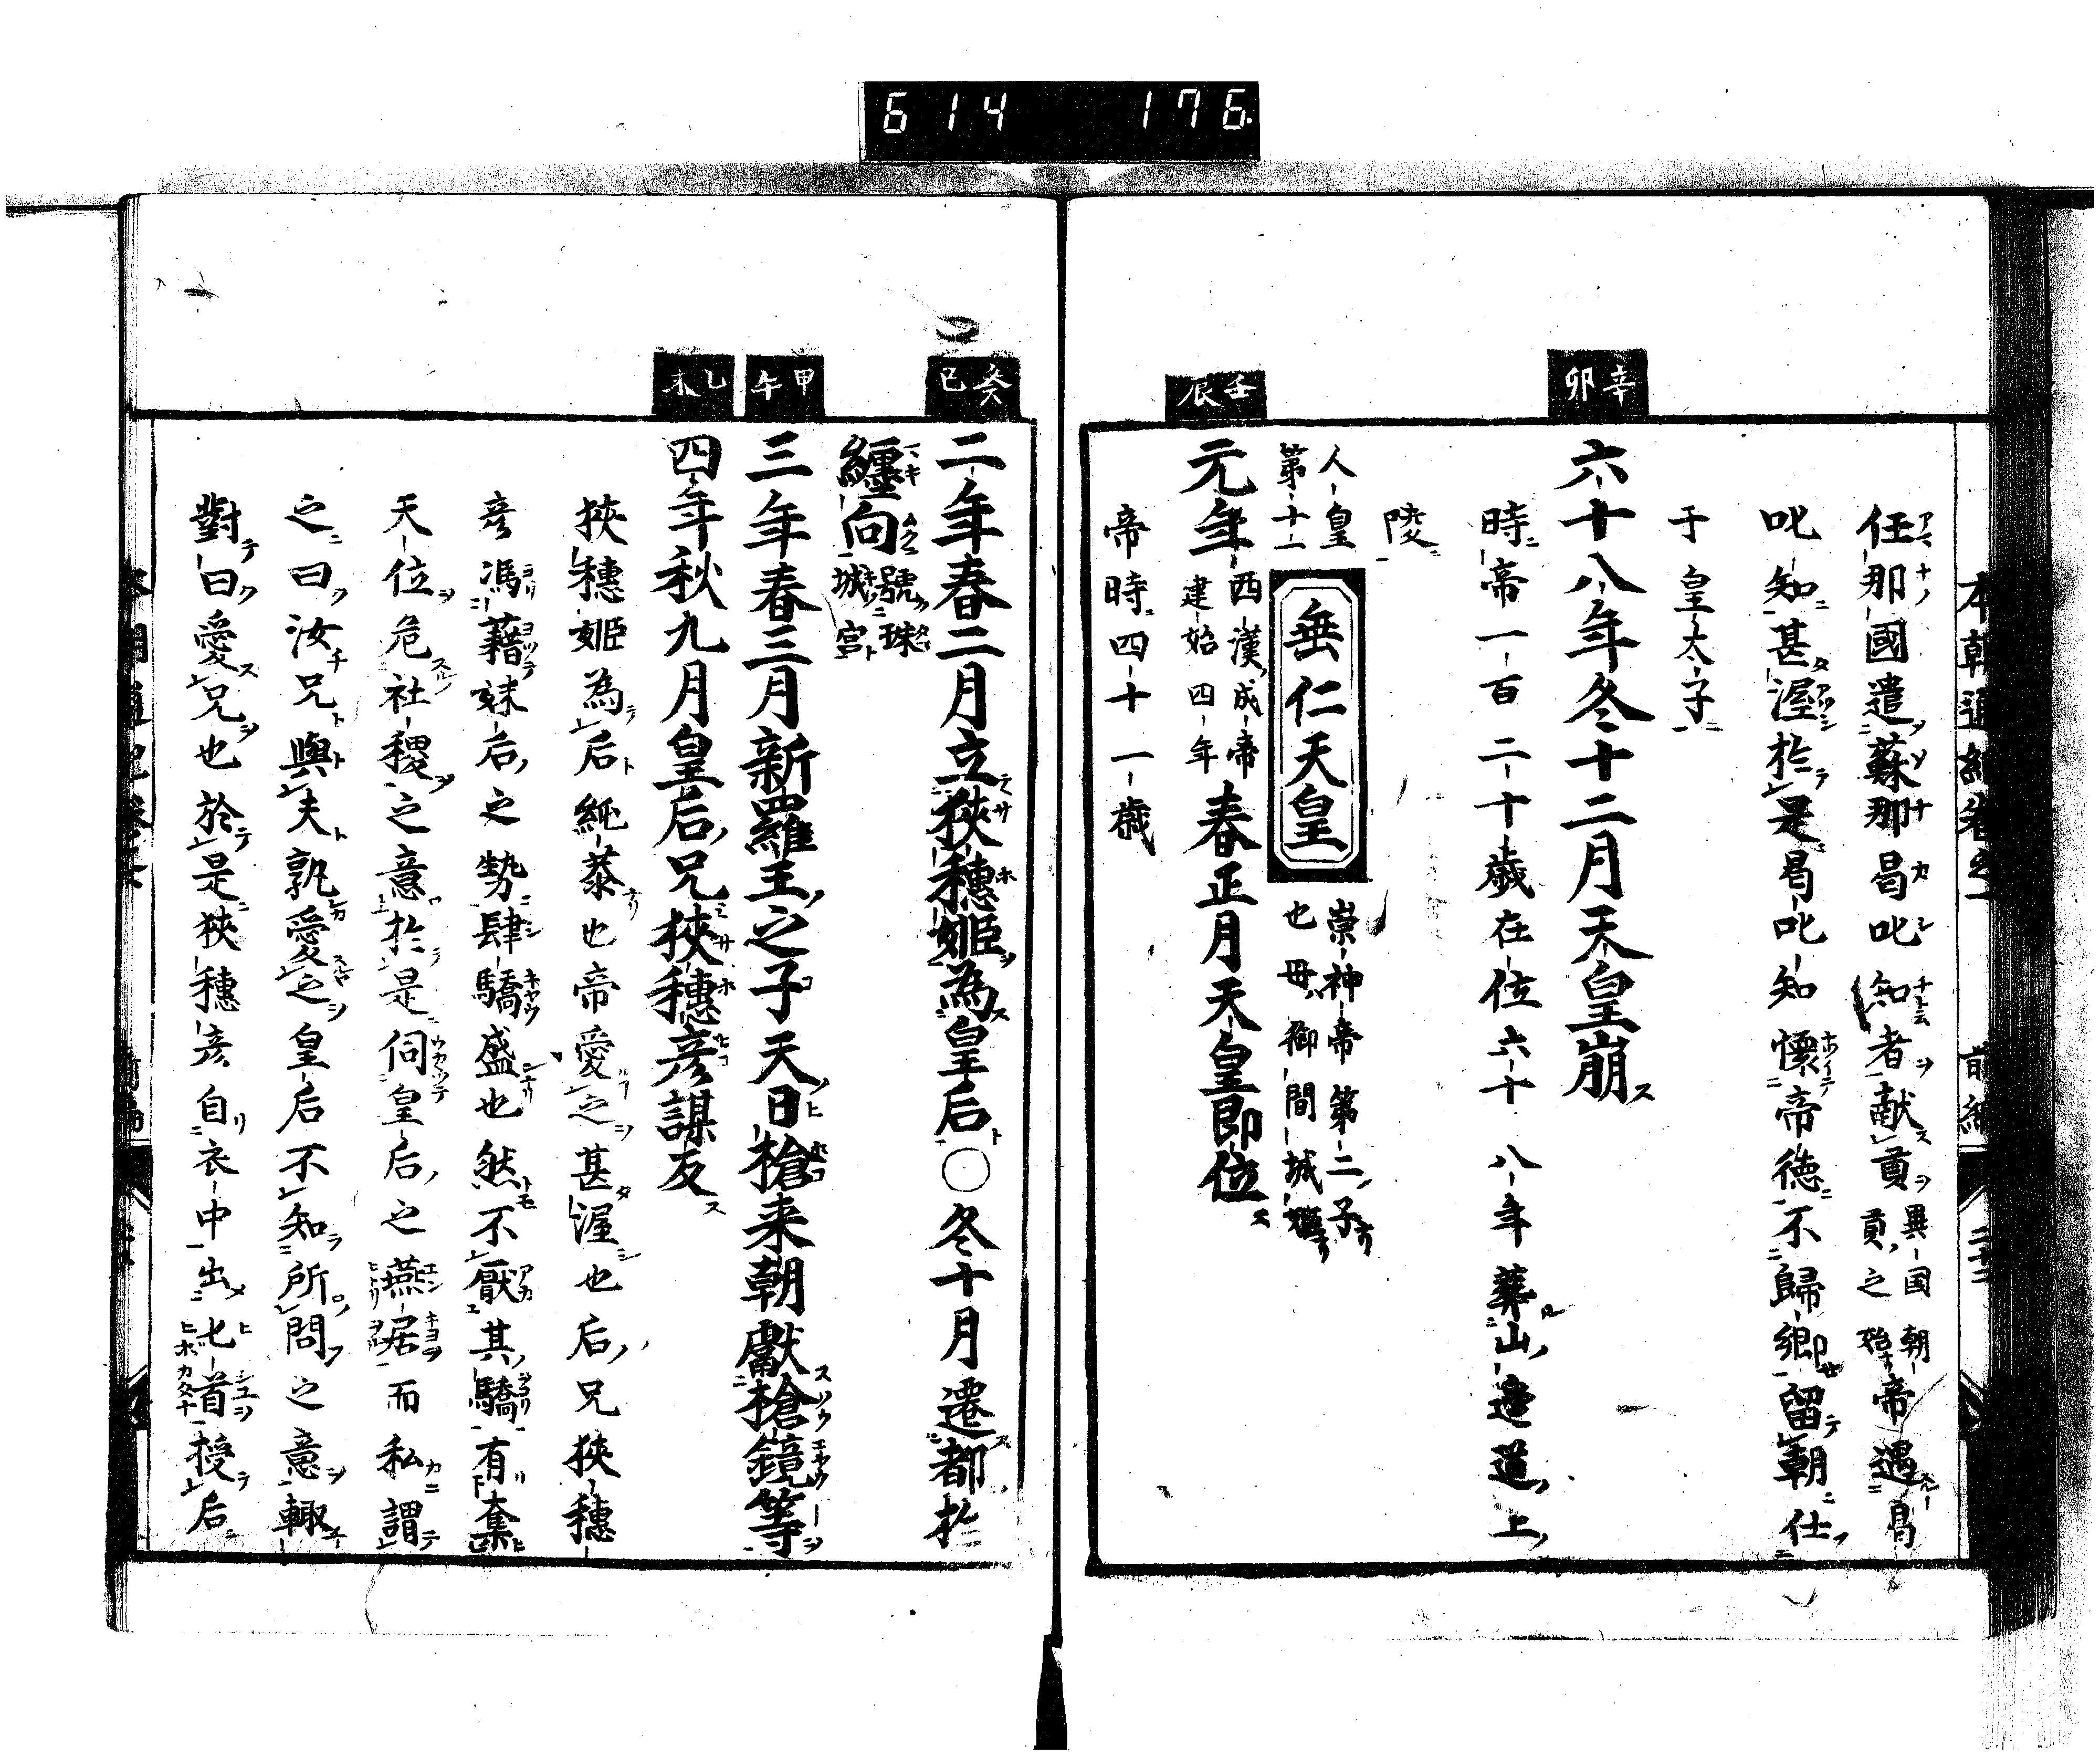 614 176
本朝通紀卷之二 前編 二十二
任那國遣蘇那曷叱知者献貢異国朝貢之始帝遇曷
叱知甚渥於是曷叱知懷帝徳不歸郷卽留朝仕
于皇太子
辛卯
六十八年冬十二月天皇崩
時帝一百二十歳在位六十八年葬山邊道上
陵
人皇第十一
垂仁天皇
崇神帝第二子也毋御間城姫
壬辰
元年西漢成帝建始四年春正月天皇即位
帝時四十一歳
癸巳
二年春二月立狹穗姫為皇后○冬十月遷都於
纏向號珠城宮
甲午
三年春三月新羅王之子天日槍来朝獻槍鏡等
乙未
四年秋九月皇后兄狹穗彦謀反
狹穗姫為后純恭也帝愛之甚渥也后兄狹穗
彦馮藉妹后之勢肆驕盛也然不厭其驕有奪
天位危社稷之意於是伺皇后之燕居而私謂
之曰汝兄與夫孰愛之皇后不知所問之意輙
對曰愛兄也於是狹穗彦自衣中出匕首授后